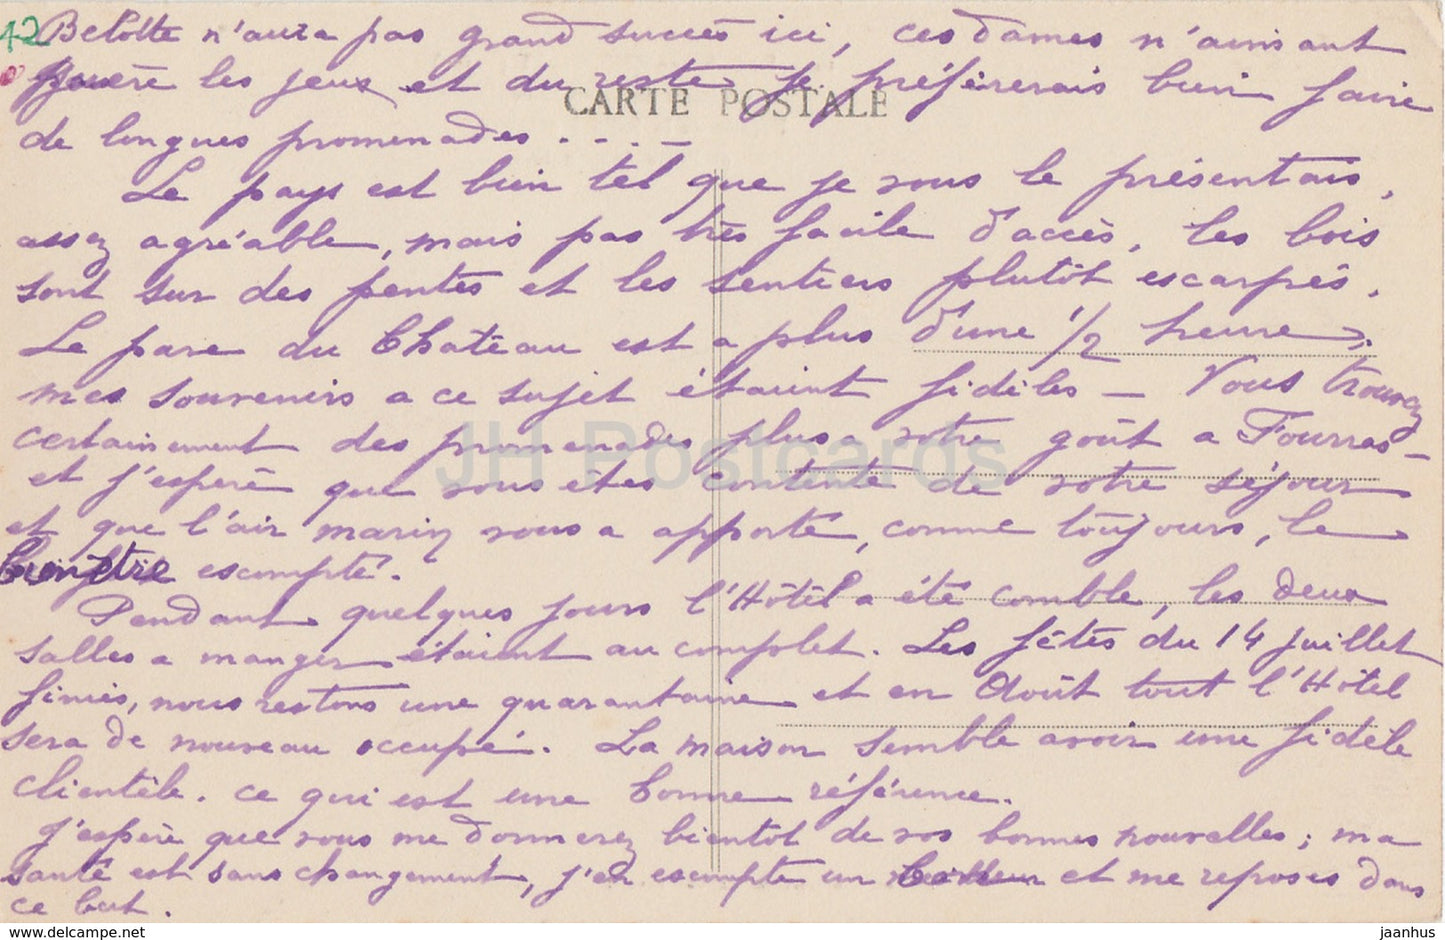 12 Belotte n'aura pas grand succès ici, ces dames n'aimant
guère les jeux et du reste je préfèrerais bien faire
CARTE POSTALE
de longues promenades....
Le pays est bien tel que je vous le présentais,
assez agréable, mais pas très facile d'accès, les bois
sont sur des pentes et les sentiers plutôt escarpés.
Le parc du Château est a plus d'une 1/2 heure,
mes souvenirs a ce sujet étaient fidèles - Vous trouvez
certainement des promenades plus a votre goût a Fourras -
et j'espère que vous êtes contente de votre séjour
et que l'air marin vous a apporté, comme toujours, le
bien être escompté.
Pendant quelques jours l'Hôtel a été comble, les deux
salles a manger étaient au complet. Les fêtes du 14 juillet
finies, nous restons une quarantaine et en Août tout l'Hôtel
sera de nouveau occupé. La maison semble avoir une fidèle
clientèle. ce qui est une bonne référence.
J'espère que vous me donnerez bientôt de vos bonnes nouvelles; ma
santé est sans changement, j'en escompte un meilleur et me reposes dans
ce but.
JH Postcards
delcampe.net
jaanhus